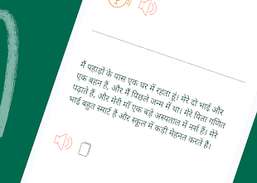 मैं पहाड़ों के पास एक घर में रहता हूं। मेरे दो भाई और
एक बहन हैं, और मैं पिछले जन्म में था। मेरे पिता गणित
पढ़ाते हैं, और मेरी माँ एक बड़े अस्पताल में नर्स हैं। मेरे
भाई बहुत स्मार्ट हैं और स्कूल में कड़ी मेहनत करते हैं।